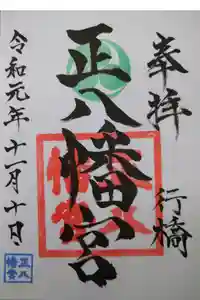 奉拝
行橋
正八幡宮
令和元年十一月十日
正八
幡宮